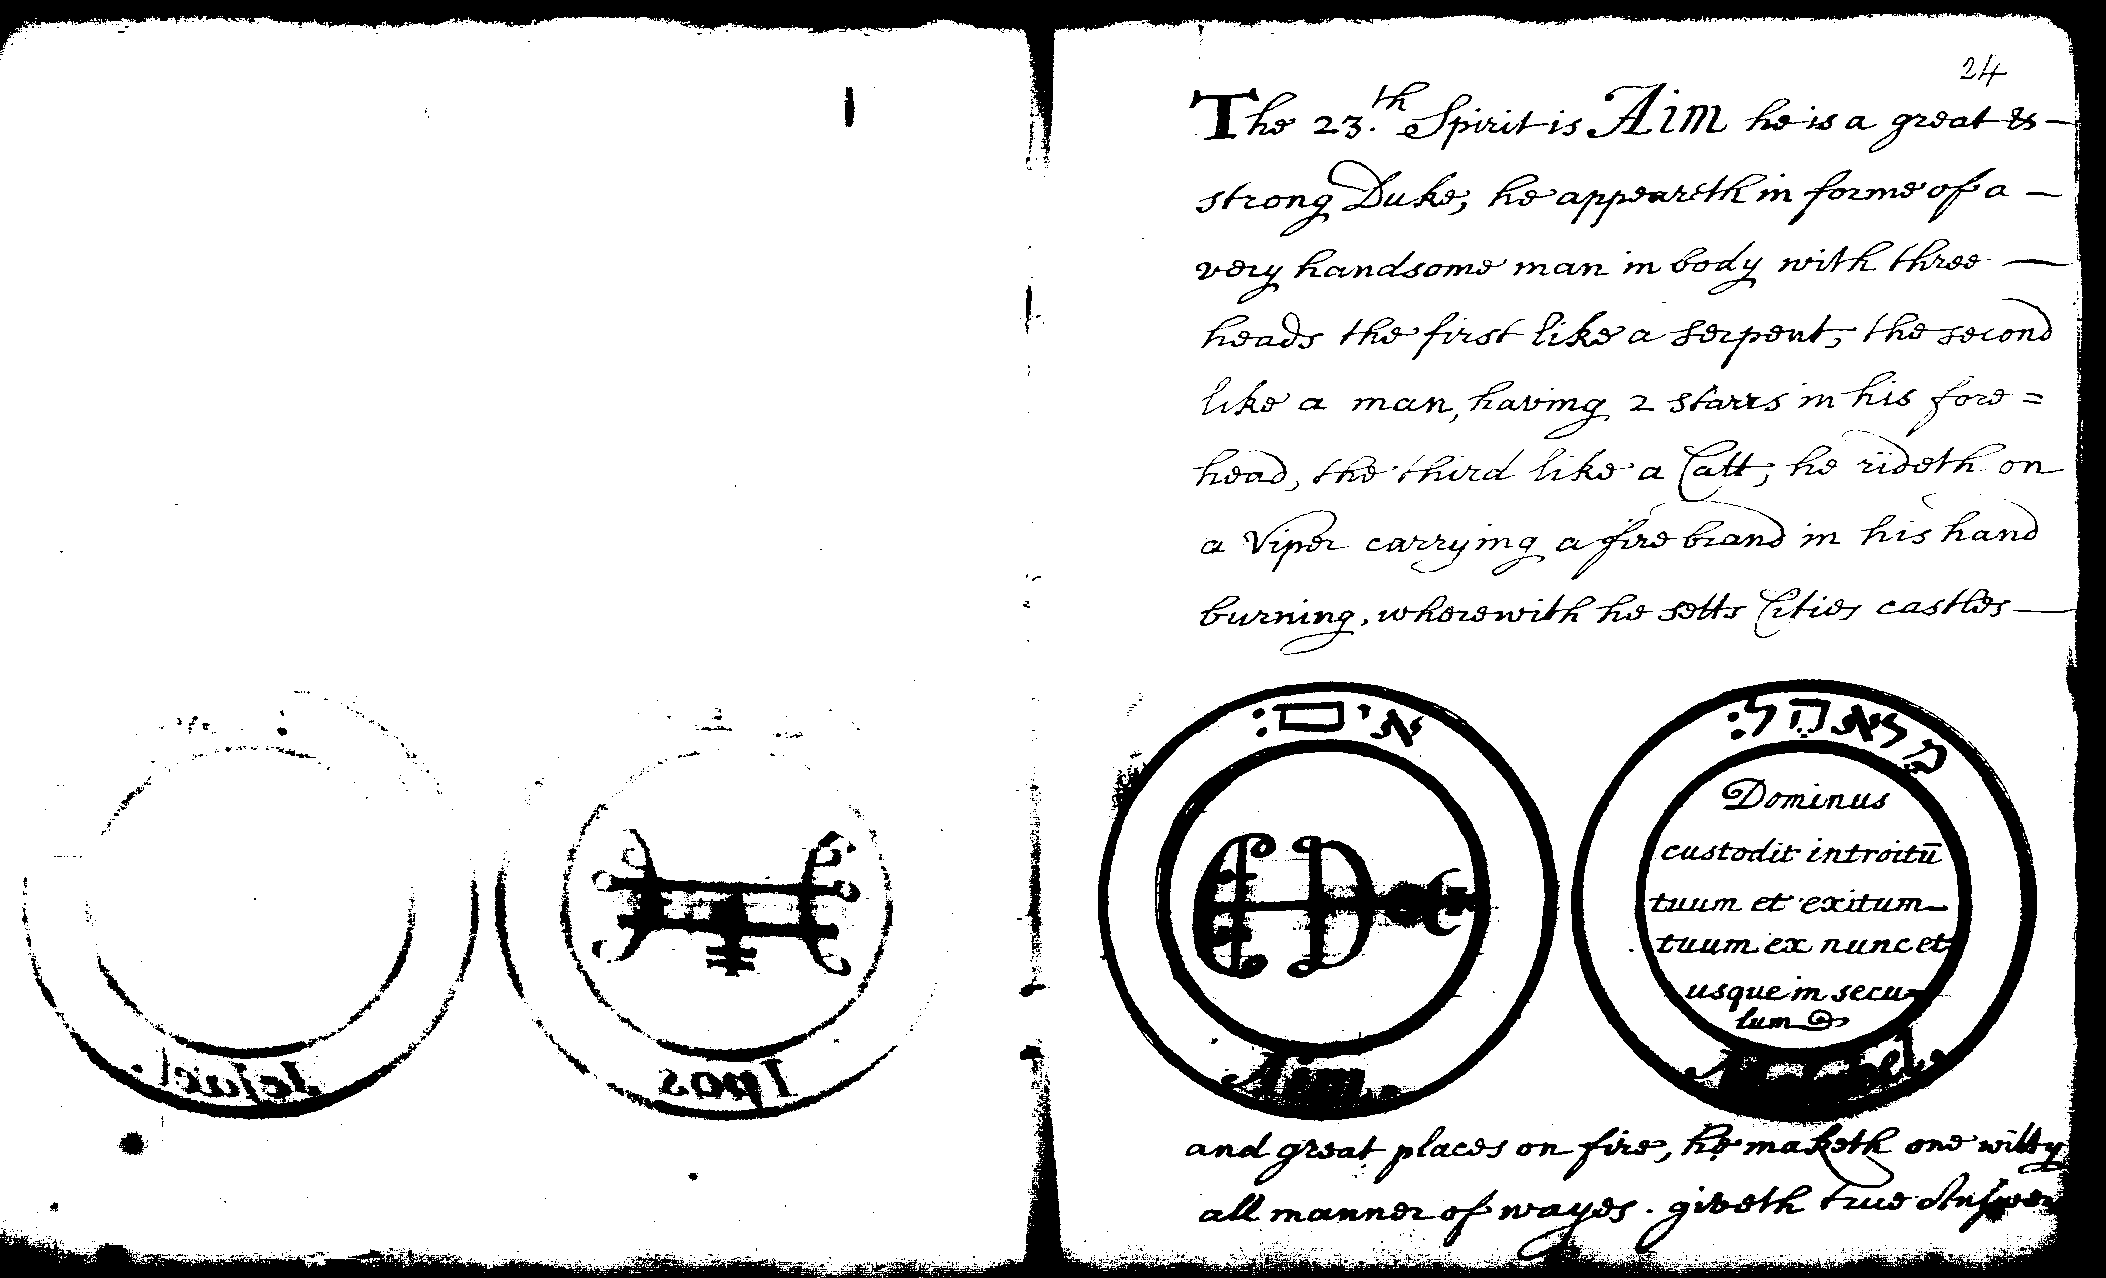 24
The 23.th Spirit is Aim he is a great &
strong Duke, he appeareth in forme of a —
very handsome man in body with three —
heads the first like a serpent, the second
like a man, having 2 starrs in his fore =
head, the third like a Catt, he rideth on
a Viper carrying a fire brand in his hand
burning, wherewith he setts Cities castles —
אים:
מלאהל:
Dominus
custodit introitū
tuum et exitum
tuum ex nunc et
usque in secu-
lum
Aim
Ipos
and great places on fire, he maketh one witty
all manner of wayes. giveth true Answer